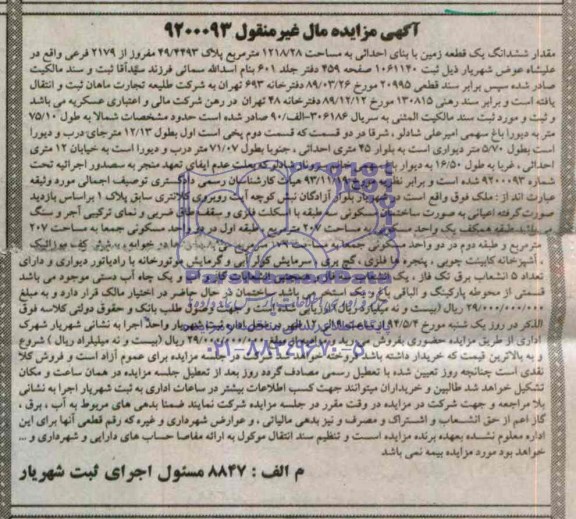 آگهی مزایده مال غیرمنقول ۹۲۰۰۰۹۳
مقدار ششدانگ یک قطعه زمین با بنای احداثی به مساحت ۱۲۱۸/۲۸ مترمربع پلاک ۴۹/۴۴۹۳ مفروز از ۲۱۷۹ فرعی واقع در
علیشاه عوض شهریار ذیل ثبت ۱۰۶۱۱۴۰ صفحه ۴۵۹ دفتر جلد ۶۰۱ بنام اسدالله سمائی فرزند سیدآقا ثبت و سند مالکیت
صادر شده سپس برابر سند قطعی ۲۰۹۹۵ مورخ ۸۹/۰۳/۲۶ دفترخانه ۶۹۳ تهران به شرکت طلیعه تجارت ماهان ثبت و انتقال
یافته است و برابر سند رهنی ۱۳۰۸۱۵ مورخ ۸۹/۱۲/۱۲ دفترخانه ۴۸ تهران در رهن شرکت مالی و اعتباری عسکریه می باشد
و ثبت و مورد ثبت سند مالکیت المثنی به سریال ۳۰۶۱۸۶-الف/۹۰ صادر شده است حدود مشخصات شمالا به طول ۷۵/۱۰
متر به دیورا باغ سهمی امیرعلی شادلو ، شرقا در دو قسمت که قسمت دوم پخی است اول بطول ۱۲/۱۳ مترجای درب و دیورا
است بطول ۵/۷۰ متر دیواری است به بلوار ۴۵ متری احداثی ، جنوبا بطول ۷۱/۰۷ متر درب و دیورا است به خیابان ۱۲ متری
احداثی ، غربا به طول ۱۶/۵۰ به دیوار باغ شادلو که بعلت عدم ایفای تعهد منجر به صدور اجرائیه تحت
شماره ۹۲۰۰۰۹۳ شده است و برابر ۹۳/۱۱/۱۹ هیات کارشناسان رسمی دادگستری توصیف اجمالی مورد وثیقه
عبارت اند از : ملک فوق واقع است شهریار بلوار آزادگان نبش کوچه روبروی کلانتری سابق پلاک ۱ براساس بازدید
صورت گرفته اعیانی به صورت ساختمان مسکونی طبقه با اسکلت فلزی و سقف طاق ضربی و نمای ترکیبی آجر و سنگ
طبقه همکف یک واحد به مساحت ۲۰۷ مترمربع ، طبقه اول در دو واحد مسکونی جمعا به مساحت ۲۰۷
مترمربع و طبقه دوم در دو واحد مسکونی جمعا به مساحت مترمربع خوابه کف موزائیک
، آشپزخانه کابینت چوبی ، پنجره ها فلزی ، گچ بری ، سرمایش کولر آبی و گرمایش موتورخانه با رادیاتور دیواری و دارای
تعداد ۵ انشعاب برق تک فاز ، یک انشعاب و یک چاه آب دستی موجود می باشد
قسمتی از محوطه پارکینگ و الباقی باغ و یک استخر ساختمان در حال حاضر در اختیار مالک قرار دارد و به مبلغ
۲۹/۰۰۰/۰۰۰/۰۰۰ ریال (بیست و نه میلیارد ریال) ارزیابی شده است و جهت وصول طلب بانک و حقوق دولتی کلاسه فوق
الذکر در روز یک شنبه مورخ ۹۴/۵/۴ در محل اداره ثبت شهریار واحد اجرا به نشانی شهریار شهرک
اداری از طریق مزایده حضوری بفروش مبلغ ۲۹/۰۰۰/۰۰۰/۰۰۰ ریال (بیست و نه میلیاراد ریال ) شروع
و به بالاترین قیمت که خریدار داشته باشد فروخته مزایده برای عموم آزاد است و فروش کلا
نقدی است چنانچه روز تعیین شده با تعطیل رسمی مصادف گردد روز بعد از تعطیل جلسه مزایده در همان ساعت و مکان
تشکیل خواهد شد طالبین و خریداران میتوانند جهت کسب اطلاعات بیشتر در ساعات اداری به ثبت شهریار اجرا به نشانی
بلا مراجعه و جهت شرکت در مزایده در وقت مقرر در جلسه مزایده شرکت نمایند ضمنا بدهی های مربوط به آب ، برق ،
گاز اعم از حق انشعاب و اشتراک و مصرف و نیز بدهی مالیاتی ، و عوارض شهرداری و غیره که رقم قطعی آنها برای این
اداره معلوم نشده بعهده برنده مزایده است و تنظیم سند انتقال موکول به ارائه مفاصا حساب های دارایی و شهرداری و ...
خواهد بود مورد مزایده بیمه نمی باشد
م الف : ۸۸۴۷ مسئول اجرای ثبت شهریار
ParsNamadData
۰۲۱-۸۸۳۴۹۶۷۰-۵